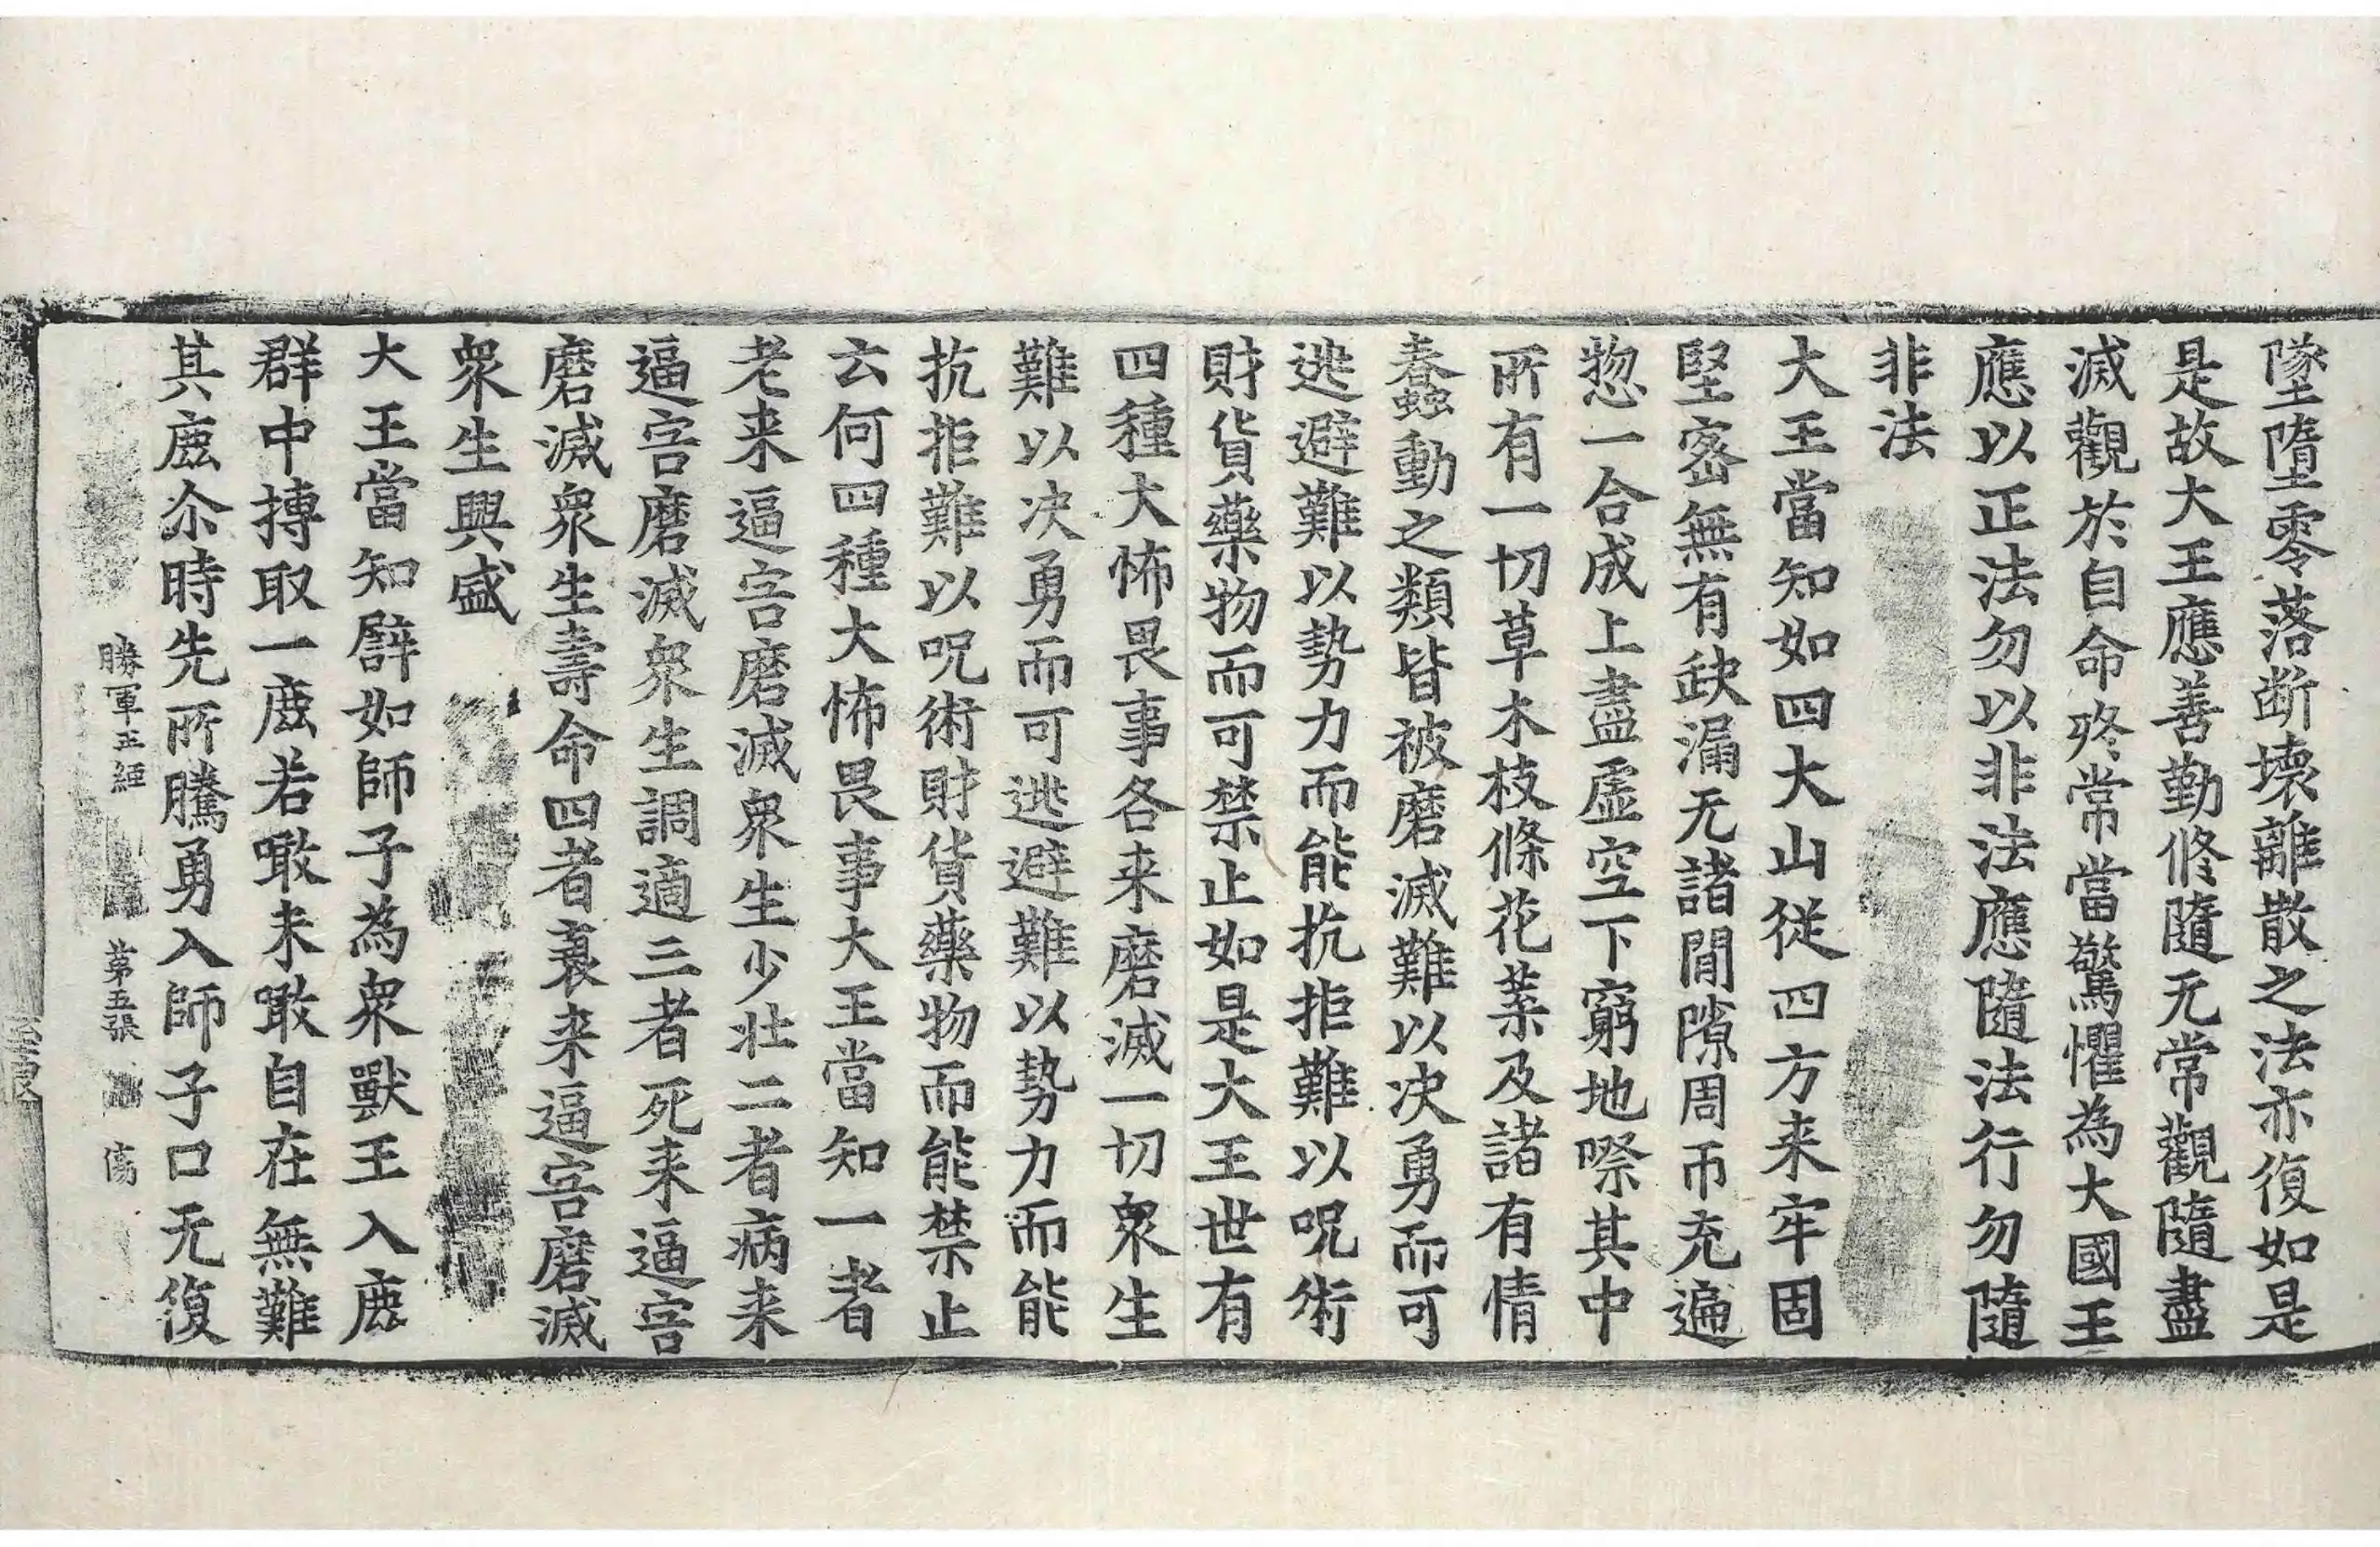 墜墮零落断壞離散之法亦復如是
是故大王應善勤修隨无常觀隨盡
滅觀於自命終常當驚懼為大國王
應以正法勿以非法應隨法行勿隨
非法
大王當知如四大山従四方来牢固
堅密無有缺漏无諸間隙周帀充遍
惣一合成上盡虛空下窮地際其中
所有一切草木枝條花葉及諸有情
蠢動之類皆被磨滅難以决勇而可
逃避難以勢力而能抗拒難以呪術
財貨藥物而可禁止如是大王世有
四種大怖畏事各来磨滅一切衆生
難以决勇而可逃避難以勢力而能
抗拒難以呪術財貨藥物而能禁止
云何四種大怖畏事大王當知一者
老来逼害磨滅衆生少壯二者病来
逼害磨滅衆生調適三者死来逼害
磨滅衆生壽命四者衰来逼害磨滅
衆生興盛
大王當知譬如師子為衆獸王入鹿
群中搏取一鹿若噉未噉自在無難
其鹿尒時先所騰勇入師子口无復
勝軍王經 第五張 傷